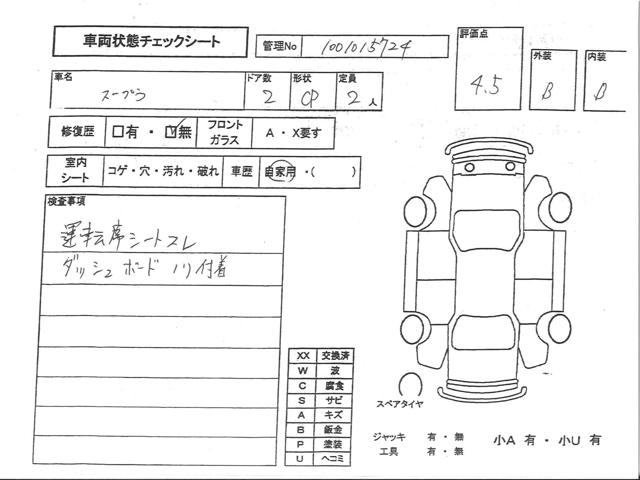 車両状態チェックシート
管理No 1001015724
評価点
4.5
外装
B
内装
B
車名
スープラ
ドア数
2
形状
CP
定員
2人
修復歴 □有・☑無
フロントガラス
A・X要す
室内シート
コゲ・穴・汚れ・破れ
車歴
自家用・( )
検査事項
運転席シートスレ
ダッシュボード ノリ付着
XX 交換済
W 波
C 腐食
S サビ
A キズ
B 鈑金
P 塗装
U ヘコミ
スペアタイヤ
ジャッキ 有・無
工具 有・無
小A 有・小U 有